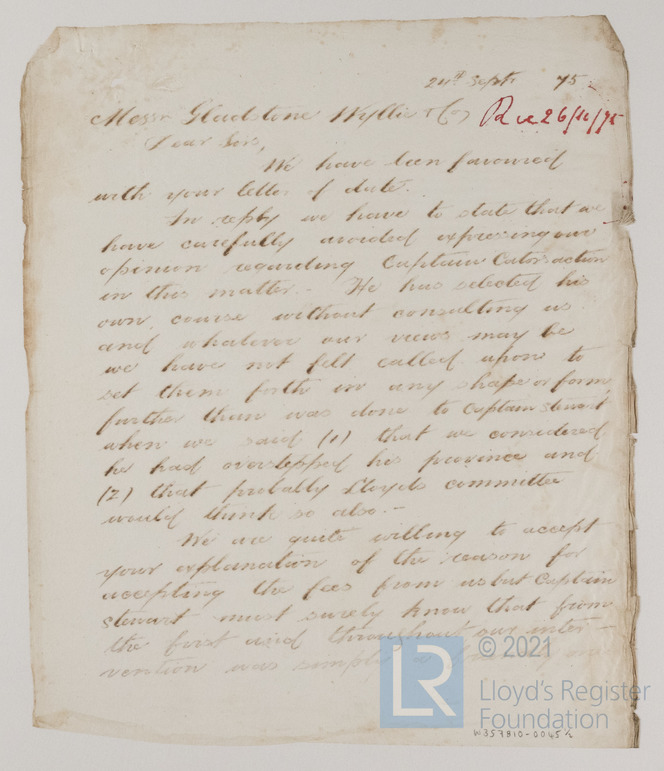 24th Septr 75
Messrs Gladstone Wyllie & Co
Rec 26/10/75
Dear Sirs,
We have been favoured
with your letter of date.
In reply we have to state that we
have carefully avoided expressing our
opinion regarding Captain Cators action
in this matter. He has selected his
own course without consulting us
and whatever our views may be
we have not felt called upon to
set them forth in any shape or form
further than was done to Captain Stewart
when we said (1) that we considered
he had overstepped his province and
(2) that probably Lloyds committee
would think so also.-
We are quite willing to accept
your explanation of the reason for
accepting the fees from us but Captain
Stewart must surely know that from
the first and throughout our inter-
vention was simply a friendly
© 2021
LR
Lloyd's Register
Foundation
W357810-0045 ½